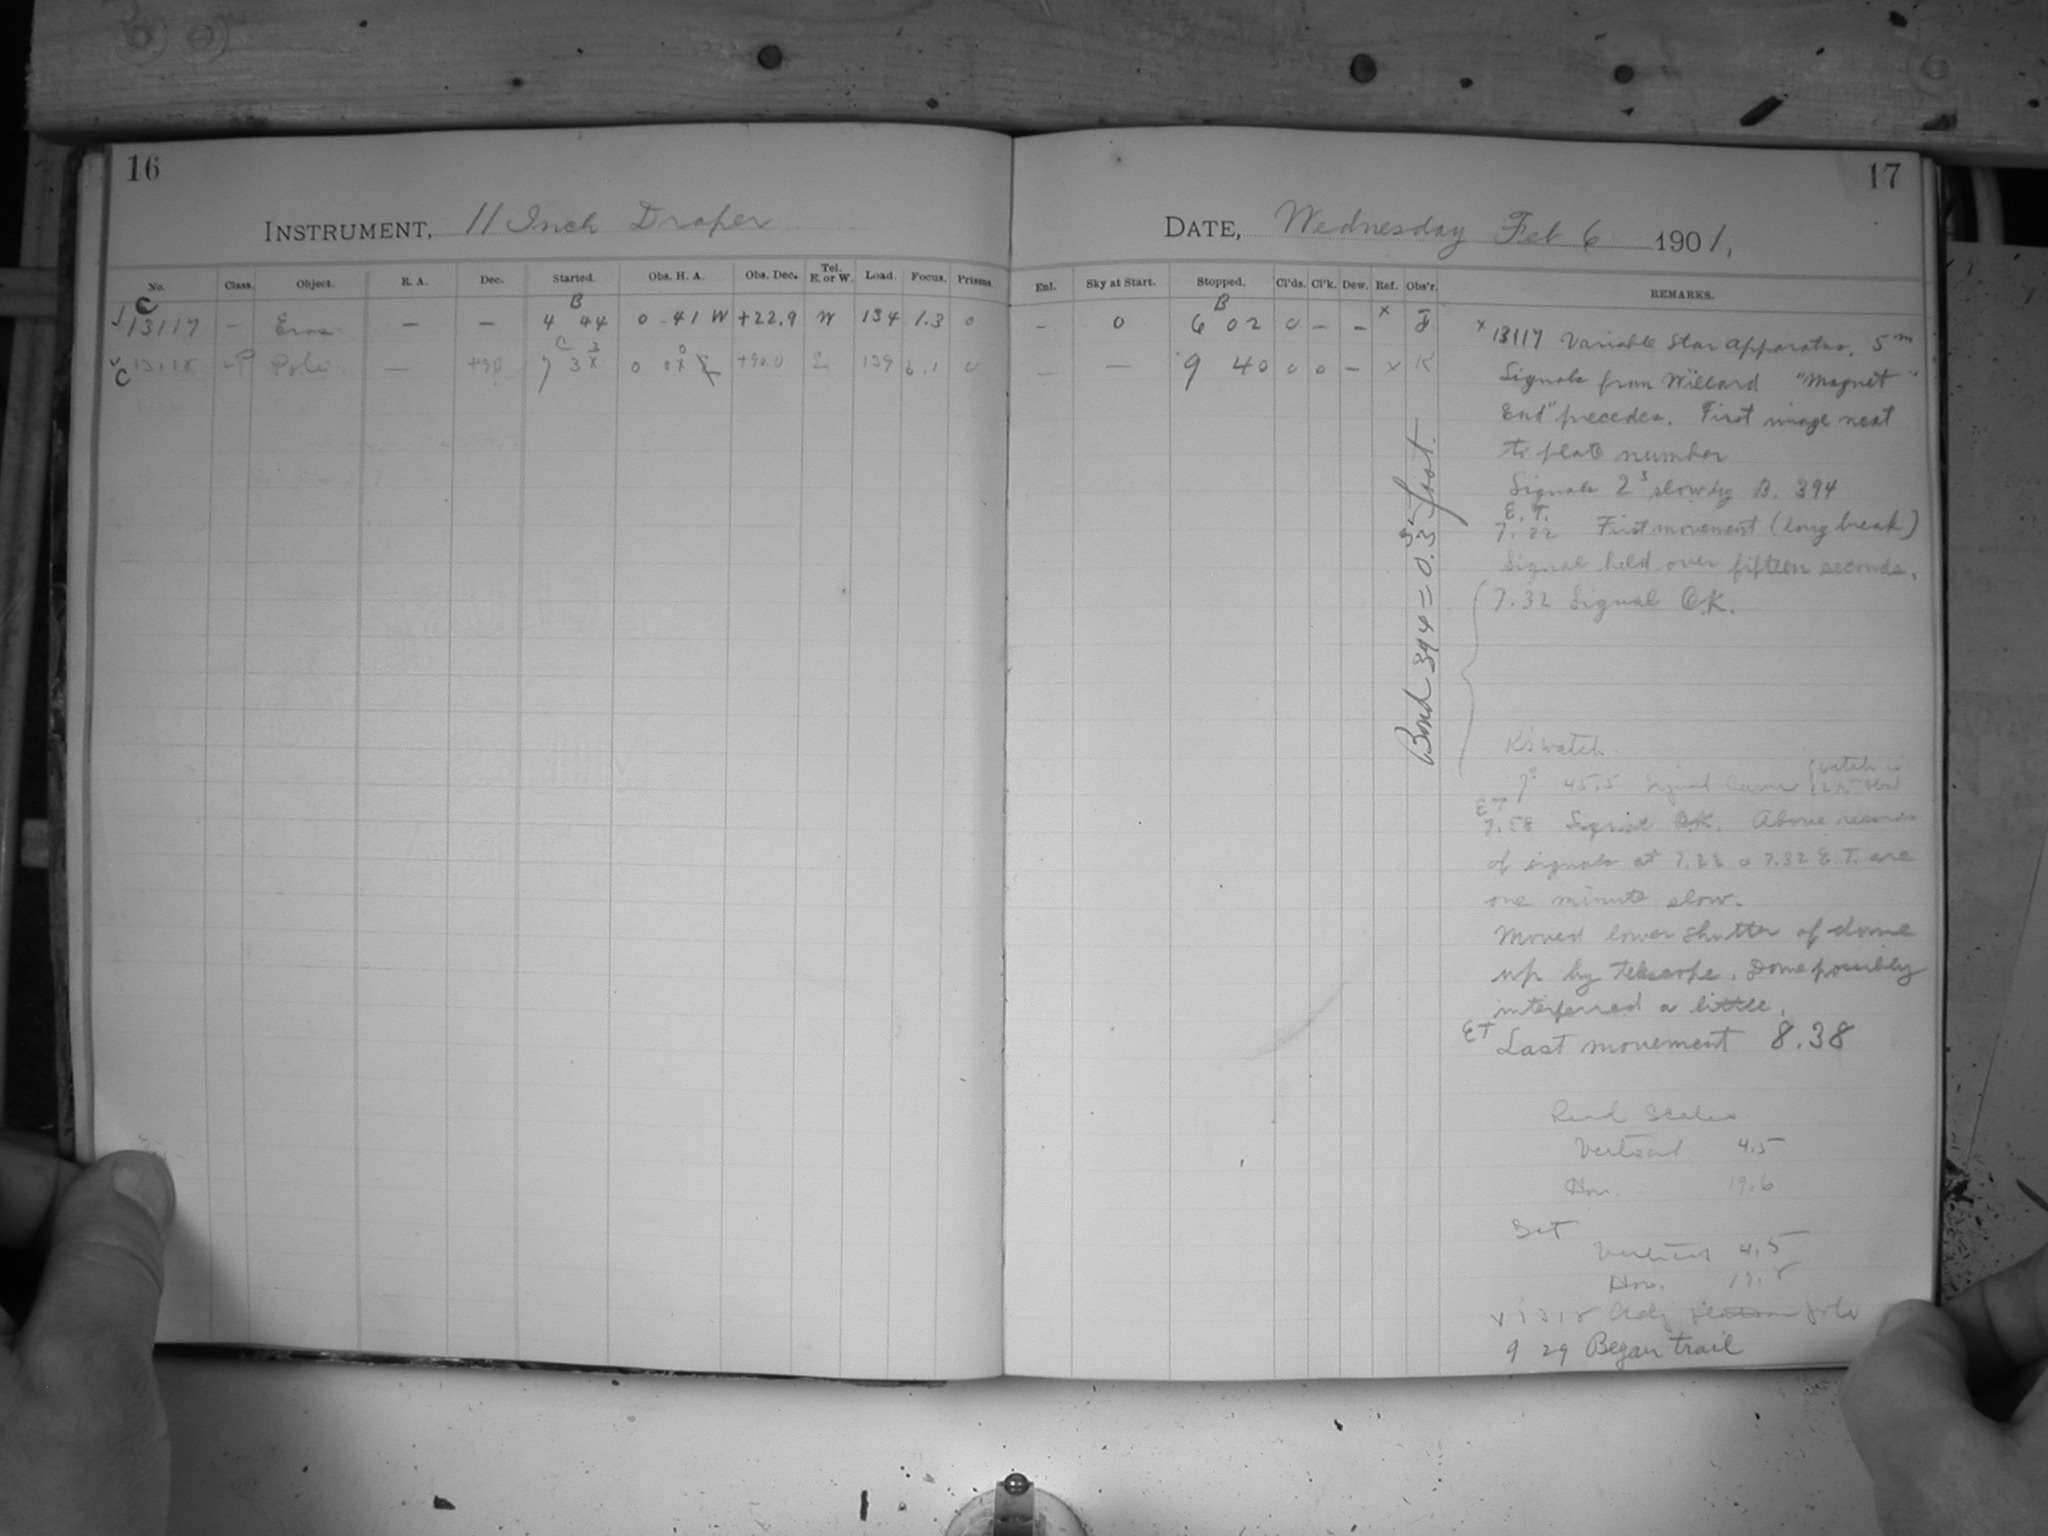 16
INSTRUMENT, 11 Inch Draper
No. Class. Object. R. A. Dec. Started. Obs. H. A. Obs. Dec. Tel. E. or W. Load. Focus. Prisms.
C B
13117 — Eros — — 4 44 0 41 W +22.9 W 134 1.3 0
C 13118 Pole — +90 7 3 0 0 +90.0 E 139 6.1 0
17
DATE, Wednesday Feb 6 1901,
Enl. Sky at Start. Stopped. Cl'ds. Cl'k. Dew. Ref. Obs'r. REMARKS.
B
— 0 6 02 0 — — x F
— — 9 40 0 0 — x K
x 13117 Variable Star apparatus. 5 m
Signals from Willard "Magnet
End" precedes. First image next
to plate number
Signals 2 s slow by B. 394
E. T.
7.22 First movement (long break)
Signal held over fifteen seconds.
7.32 Signal O.K.
Bond 394 = 0.3 s fast.
K's watch
7 45.5 Signal
E T
7.58 Signal O.K. Above records
of signals at 7.22 & 7.32 E. T. are
one minute slow.
Moved lower shutter of dome
up by telescope. Dome possibly
interferred a little.
E T Last movement 8.38
Read Scales
Vertical 4.5
Hor. 19.6
Set
Vertical 4.5
Hor. 19.8
x 1318 Adj pole
9 29 Began trail